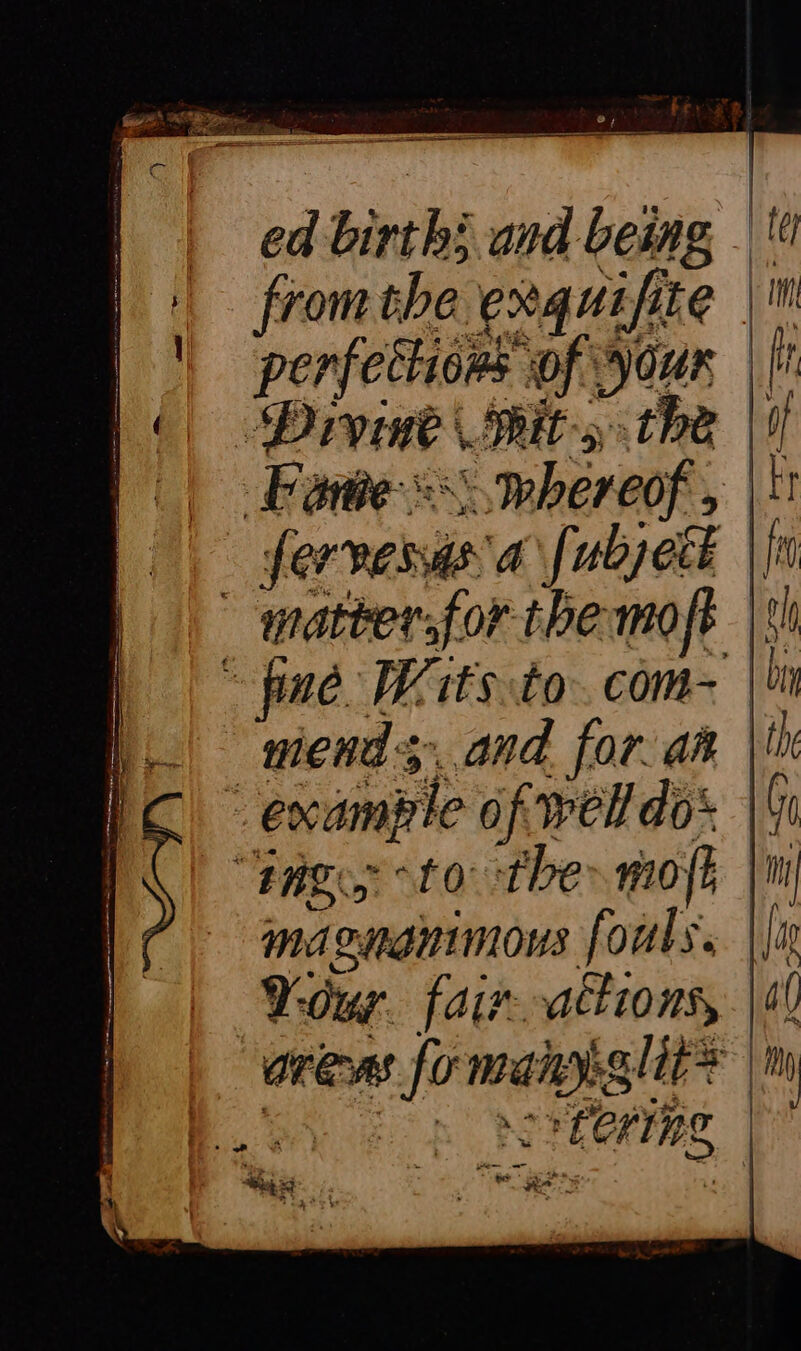 ed birth; and being
from the exquiſite
perfections of your
Divine Wit, the
Fame whereof,
ſerves as a ſubject
matter for the moſt
fine Wits to com-
mend; and for an
example of well do-
ing, to the moſt
magnanimous ſouls.
Your fair actions,
are as ſo many glit-
tering